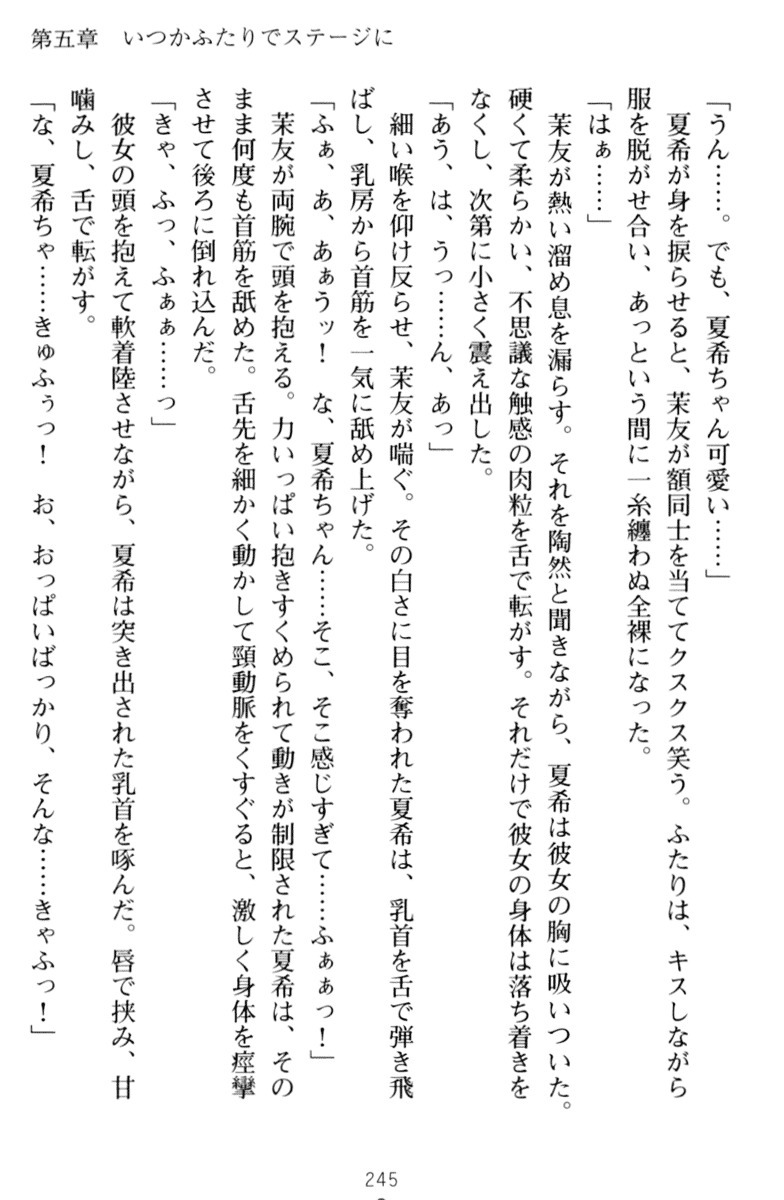 第五章　いつかふたりでステージに
「うん……。でも、夏希ちゃん可愛い……」
　夏希が身を捩らせると、茉友が額同士を当ててクスクス笑う。ふたりは、キスしながら
服を脱がせ合い、あっという間に一糸纏わぬ全裸になった。
「はぁ……」
　茉友が熱い溜め息を漏らす。それを陶然と聞きながら、夏希は彼女の胸に吸いついた。
硬くて柔らかい、不思議な触感の肉粒を舌で転がす。それだけで彼女の身体は落ち着きを
なくし、次第に小さく震え出した。
「あう、は、うっ……ん、あっ」
　細い喉を仰け反らせ、茉友が喘ぐ。その白さに目を奪われた夏希は、乳首を舌で弾き飛
ばし、乳房から首筋を一気に舐め上げた。
「ふぁ、あ、あぁうッ！　な、夏希ちゃん……そこ、そこ感じすぎて……ふぁぁっ！」
　茉友が両腕で頭を抱える。力いっぱい抱きすくめられて動きが制限された夏希は、その
まま何度も首筋を舐めた。舌先を細かく動かして頸動脈をくすぐると、激しく身体を痙攣
させて後ろに倒れ込んだ。
「きゃ、ふっ、ふぁぁ……っ」
　彼女の頭を抱えて軟着陸させながら、夏希は突き出された乳首を啄んだ。唇で挟み、甘
噛みし、舌で転がす。
「な、夏希ちゃ……きゅふぅっ！　お、おっぱいばっかり、そんな……きゃふっ！」
245